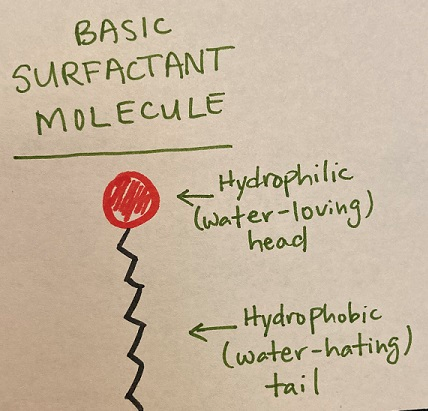 BASIC
SURFACTANT
MOLECULE
Hydrophilic
(water-loving)
head
Hydrophobic
(water-hating)
tail